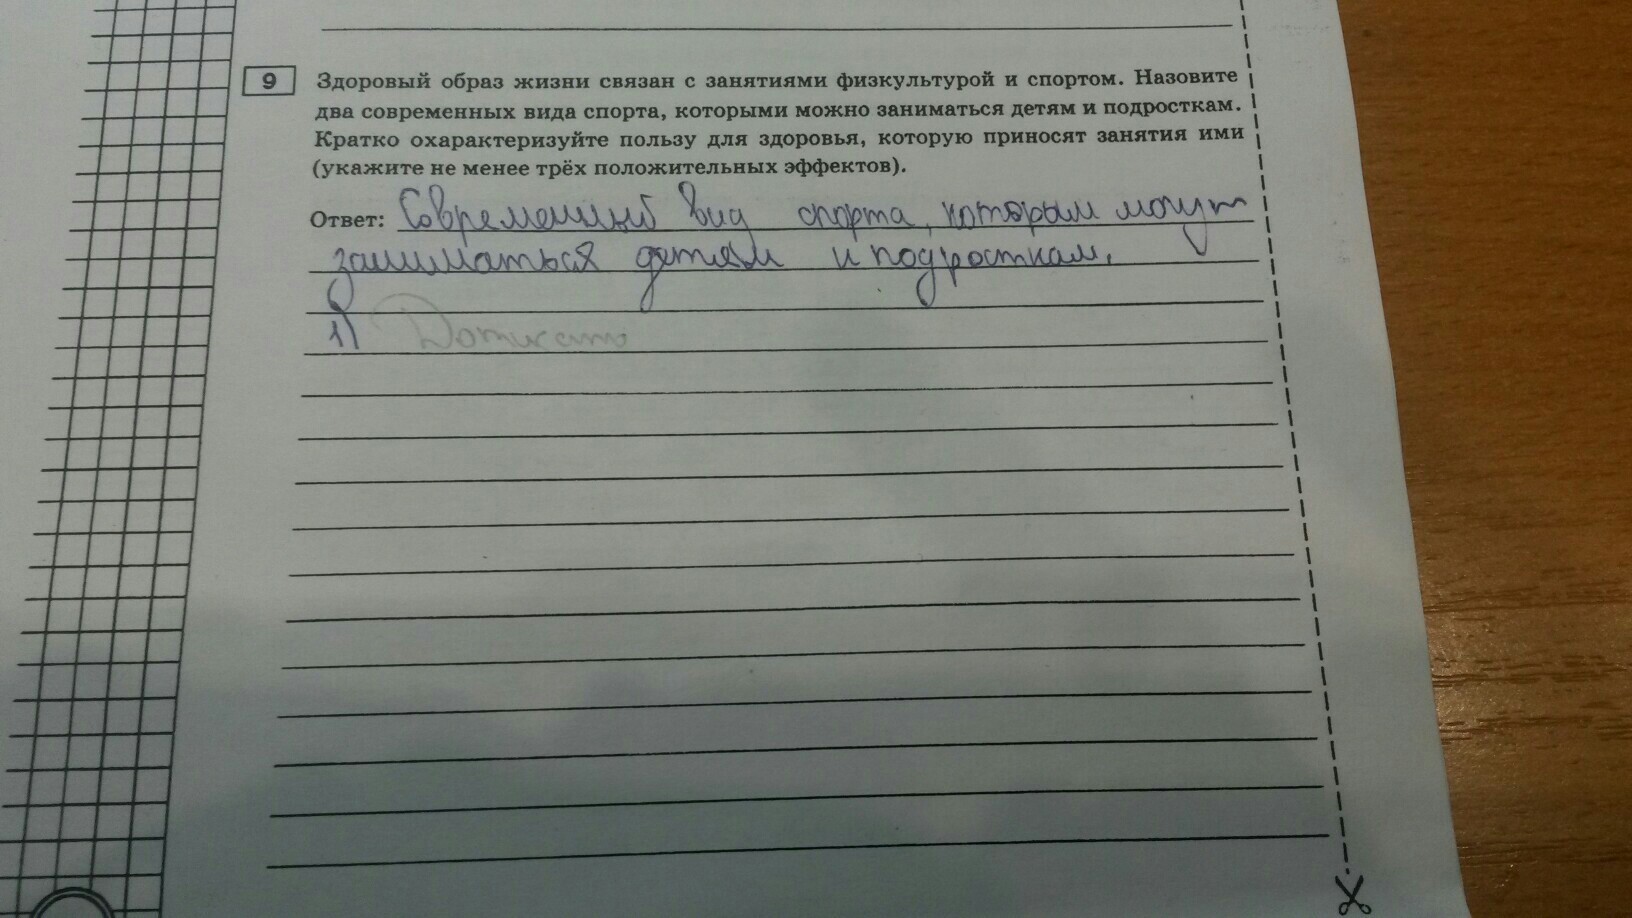 9
Здоровый образ жизни связан с занятиями физкультурой и спортом. Назовите
два современных вида спорта, которыми можно заниматься детям и подросткам.
Кратко охарактеризуйте пользу для здоровья, которую приносят занятия ими
(укажите не менее трёх положительных эффектов).
Ответ: Современный вид спорта, которым могут
заниматься детям и подросткам.
1)